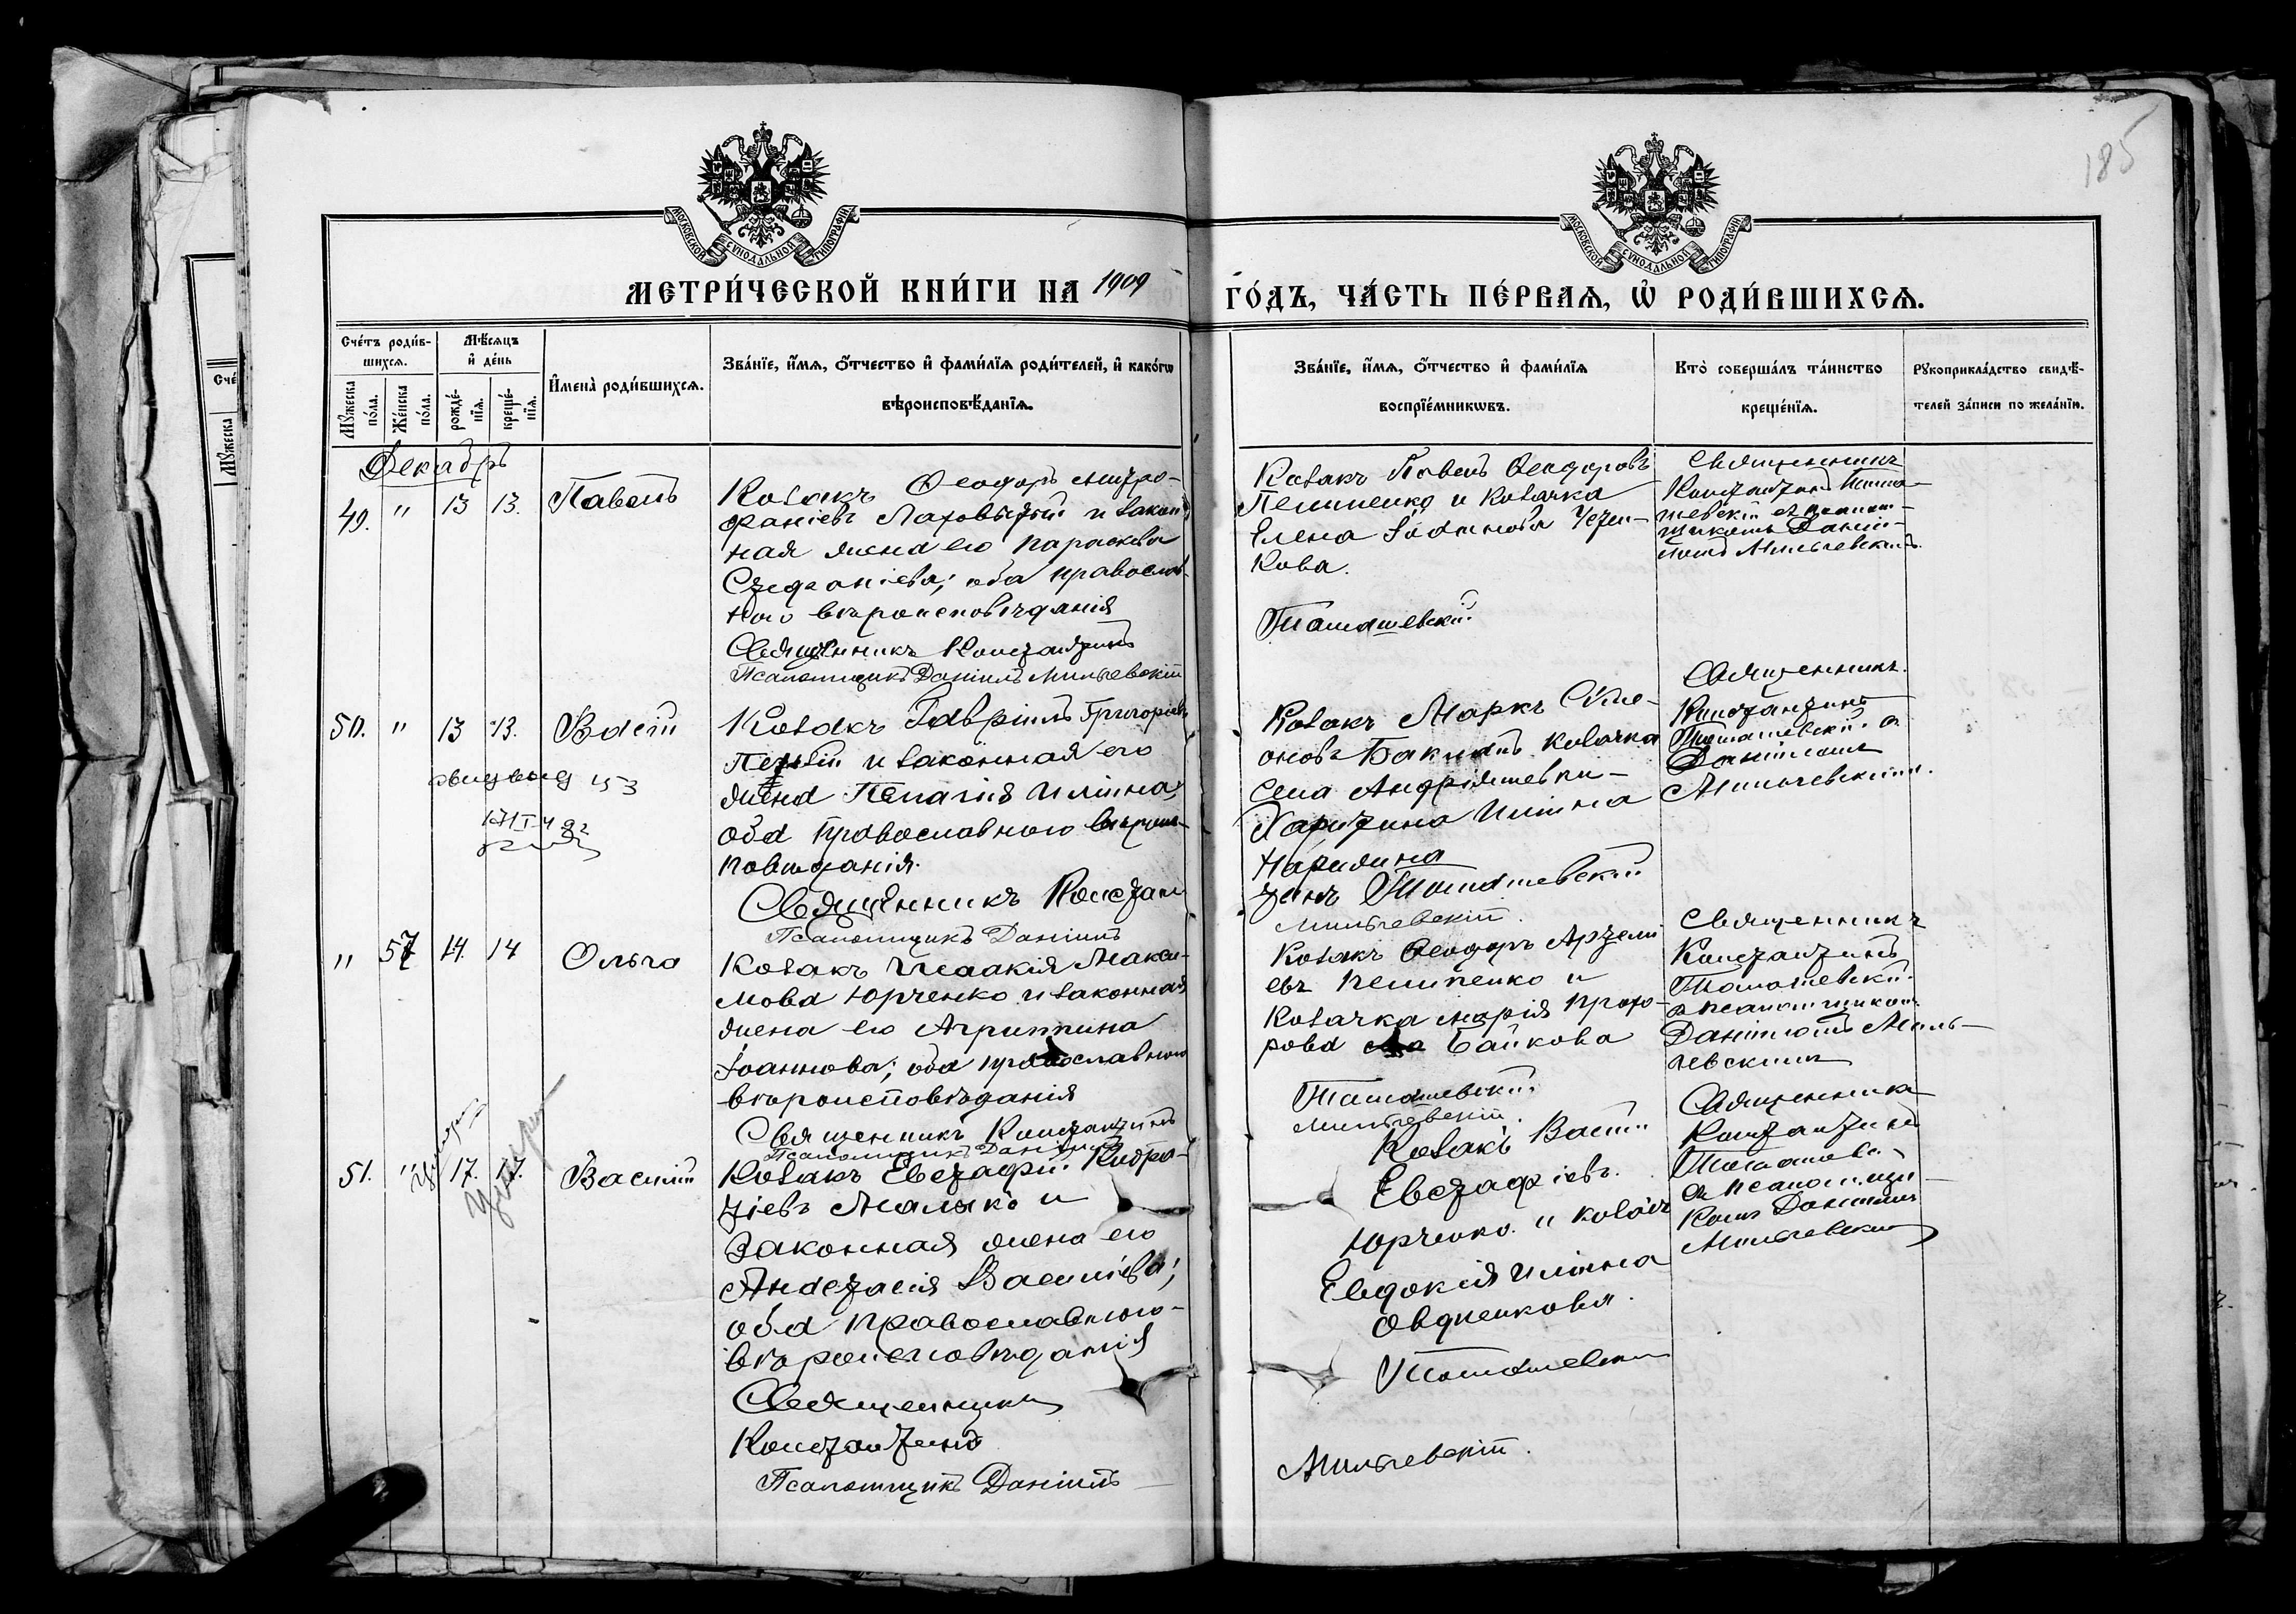 185
МОСКОВСКОЙ СѴНОДАЛЬНОЙ ТИПОГРАФІИ
МОСКОВСКОЙ СѴНОДАЛЬНОЙ ТИПОГРАФІИ
МЕТРИ́ЧЕСКОЙ КНИ́ГИ НА 1909 ГО́ДЪ, ЧА́СТЬ ПЕ́РВАЯ, Ѡ РОДИ́ВШИХСЯ.
Сче́тъ роди́в-
шихся.
Мꙋжеска по́ла.
Же́нска по́ла.
Мѣ́сяцъ
и҆ де́нь
рожде́-
нїя.
креще́-
нїя.
И҆мена̀ роди́вшихся.
Зва́нїе, и҆́мя, ѻ҆́тчество и҆ фами́лїя роди́телей, и҆ како́гѡ
вѣроисповѣ́данїя.
Зва́нїе, и҆́мя, ѻ҆́тчество и҆ фами́лїя
воспрїе́мникѡвъ.
Кто̀ соверша́лъ та́инство
креще́нїя.
Рꙋкоприкла́дство свидѣ́-
телей за́писи по жела́нїю.
Декабрь
49. " 13 13. Павелъ
Козакъ Ѳеодоръ Митро-
фаніевъ и закон-
ная жена его Параскева
Стефаніева; оба православ-
наго вѣроисповѣданія
Священникъ Константинъ
Псаломщикъ Даніилъ Мильчевскій
Козакъ Павелъ Ѳеодоровъ
Пелипенко и Козачка
Елена Іоаннова
кова.
Томашевскій
Священникъ
Константинъ Тома-
шевскій съ псалом-
щикомъ Дании-
ломъ Мильчевскимъ.
50. " 13 13. Василій
Козакъ Гавріилъ Григоріевъ
и законная его
жена Пелагія Иліина;
оба православного вѣроис-
повѣданія.
Священникъ Констан-
Псаломщикъ Даніилъ
Козакъ Маркъ Симе-
оновъ Бакланъ Козачка
села Андріяшевки
Харитина Иліина
Нарижна
тинъ Томашевскій
Мильчевскій.
Священникъ.
Константинъ
Томашевскій съ
Даніиломъ
Мильчевскимъ.
" 57 14. 14 Ольга
Козакъ Исаакія Макси-
мова Юрченко и законная
жена его Агриппина
Іоаннова; оба православного
вѣроисповѣданія
Священникъ Константинъ
Псаломщикъ Даніилъ
Козакъ Ѳеодоръ Артемі-
евъ Пелипенко и
Козачка Марія Прохо-
рова Байкова
Томашевскій
Мильчевскій.
Священникъ
Константинъ
Томашевскій
съ псаломщикомъ
Даніиломъ Миль-
чевскимъ
51. " 17. 17. Василій
Козакъ Евстафій Кодра-
тіевъ Малыко и
Законная жена его
Анастасія Василіева;
оба Православного
вѣроисповѣданія
Священникъ
Константинъ
Псаломщикъ Даніилъ
Козакъ Василій
Евстафіевъ
Юрченко и козачка
Евдокія Иліина
Овдіенкова.
Томашевскій
Мильчевскій.
Священникъ
Константинъ
Томашевскій
съ псаломщи-
комъ Даніиломъ
Мильчевскимъ